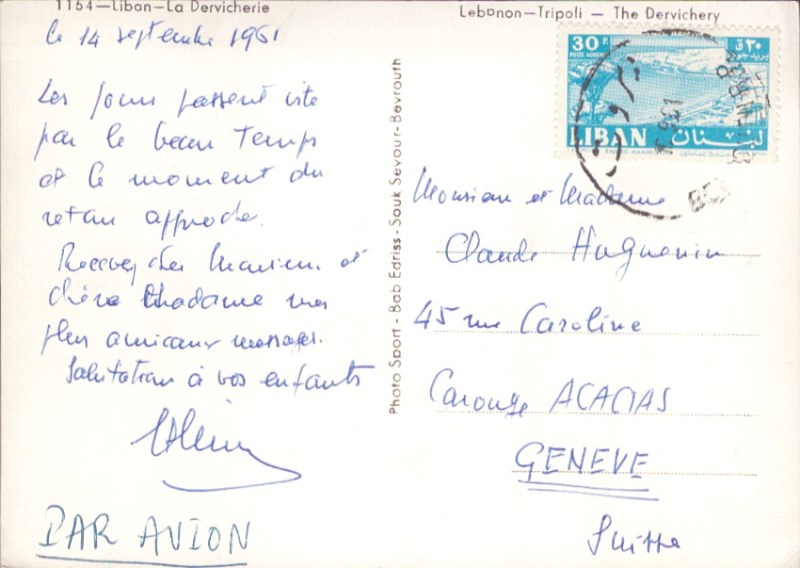 1154—Liban—La Dervicherie
Lebonon—Tripoli — The Dervichery
le 14 septembre 1961
Les jours passent vite
par le beau temps
et le moment du
retour approche.
Recevez cher Monsieur et
chère Madame mes
plus amicaux messages.
Salutation à vos enfants
PAR AVION
Photo Sport - Bab Edriss - Souk Seyour - Beyrouth
30 P.
٣٠ ق
LIBAN لبنان
بيروت
Monsieur et Madame
Claude Huguenin
45 rue Caroline
Carouge ACACIAS
GENEVE
Suisse